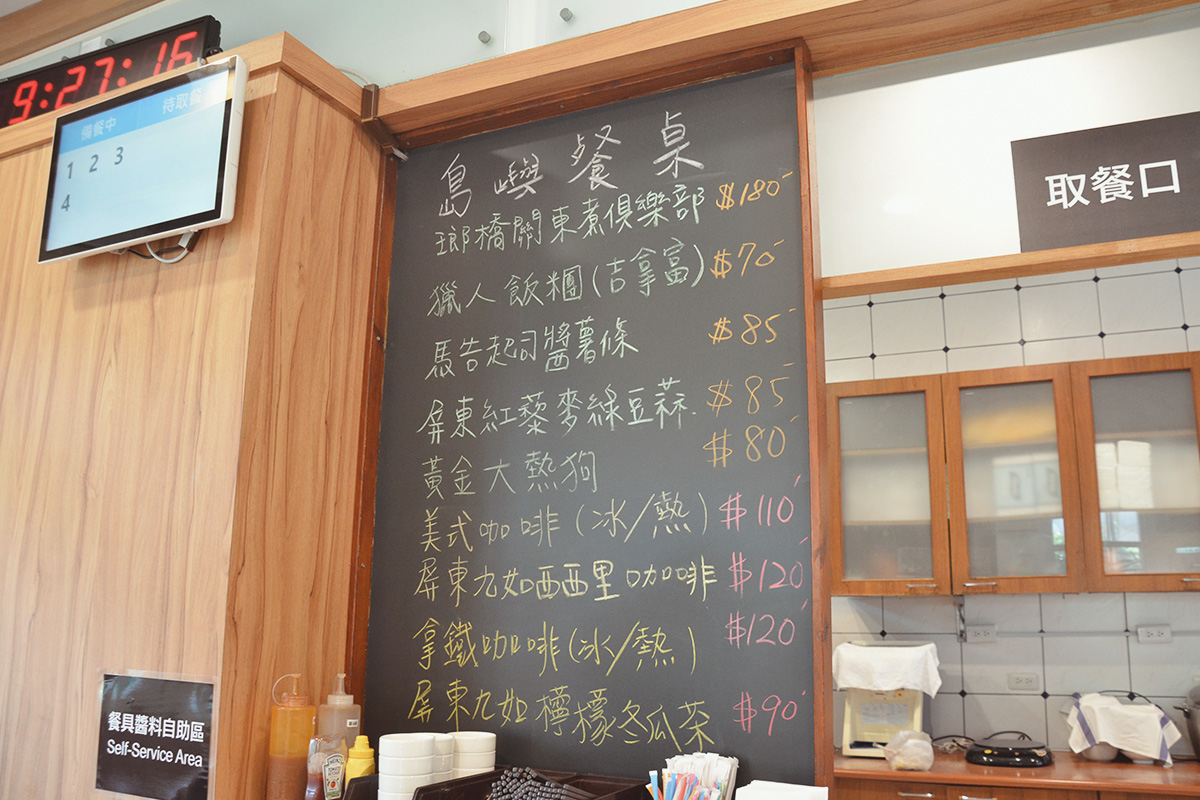 9:27:16
備餐中 待取餐
1 2 3
4
島嶼餐桌
瑯橋關東煮俱樂部 $180
獵人飯糰(吉拿富) $70
馬告起司醬薯條 $85
屏東紅藜麥綠豆蒜. $85
黃金大熱狗 $80
美式咖啡(冰/熱) $110
屏東九如西西里咖啡 $120
拿鐵咖啡(冰/熱) $120
屏東九如檸檬冬瓜茶 $90
取餐口
餐具醬料自助區
Self-Service Area
HEINZ
TOMATO